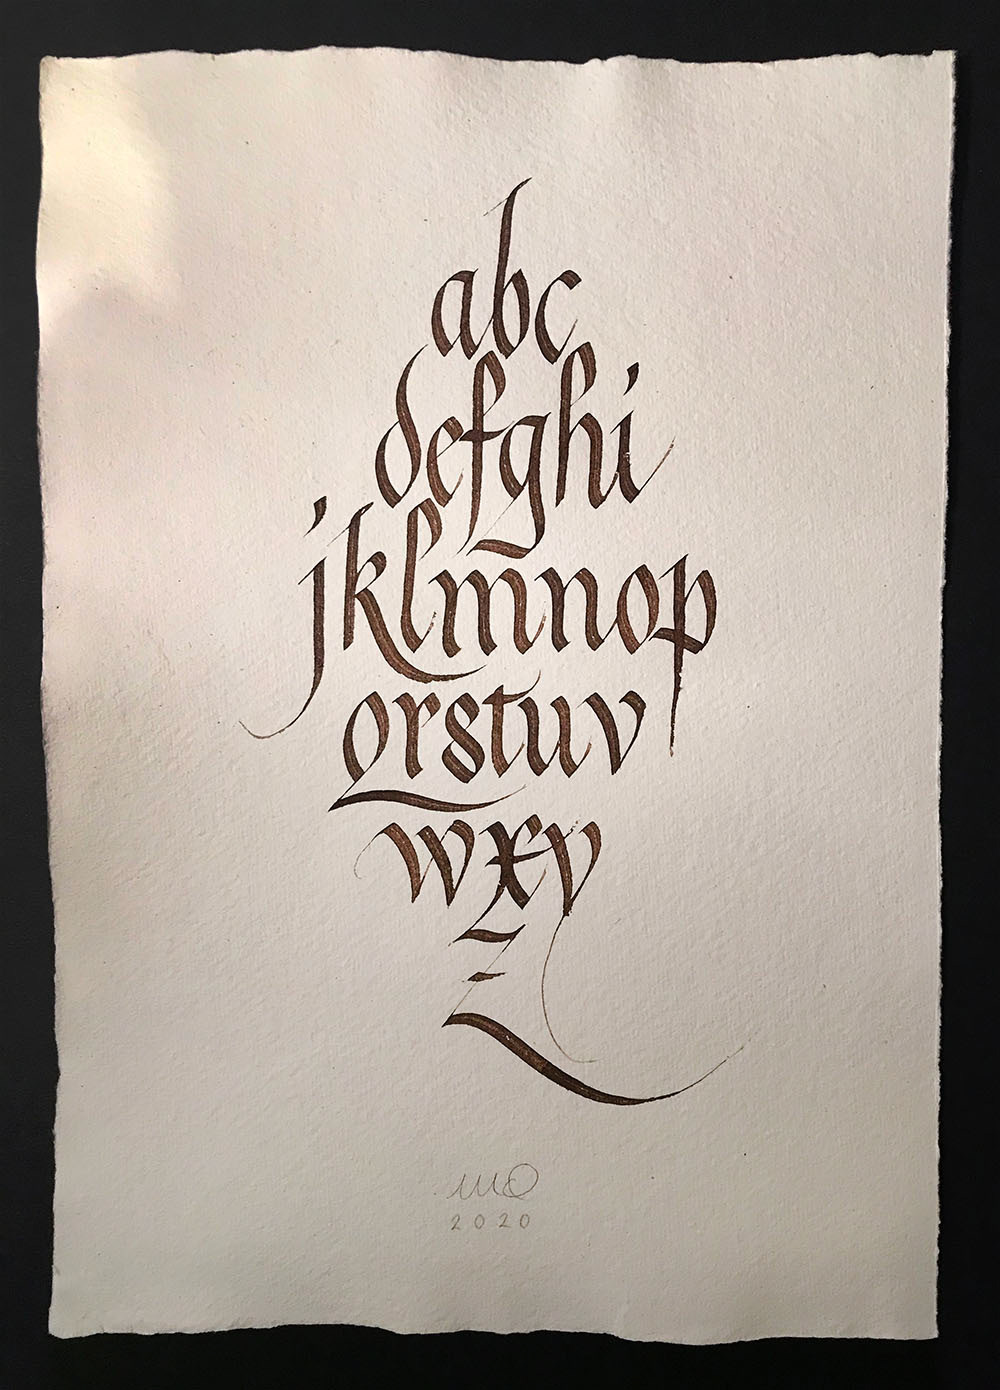 abc
defghi
jklmnop
qrstuv
wxy
z
2020